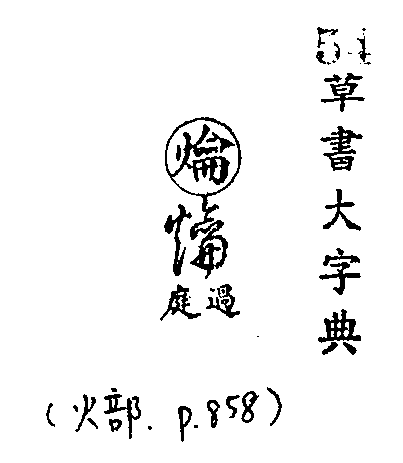 54
草書大字典
過庭
(火部. p.858)